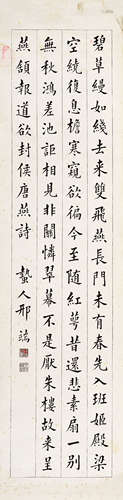 碧草縵如綫去來雙飛燕長門未有春先入班姬殿梁
空繞復息檐寒窺欲徧今至随紅萼昔還悲素扇一別
無秋鴻差池詎相見非關憐翠幕不是厭朱樓故來呈
燕頷報道欲封侯唐燕詩 蟄人邢端